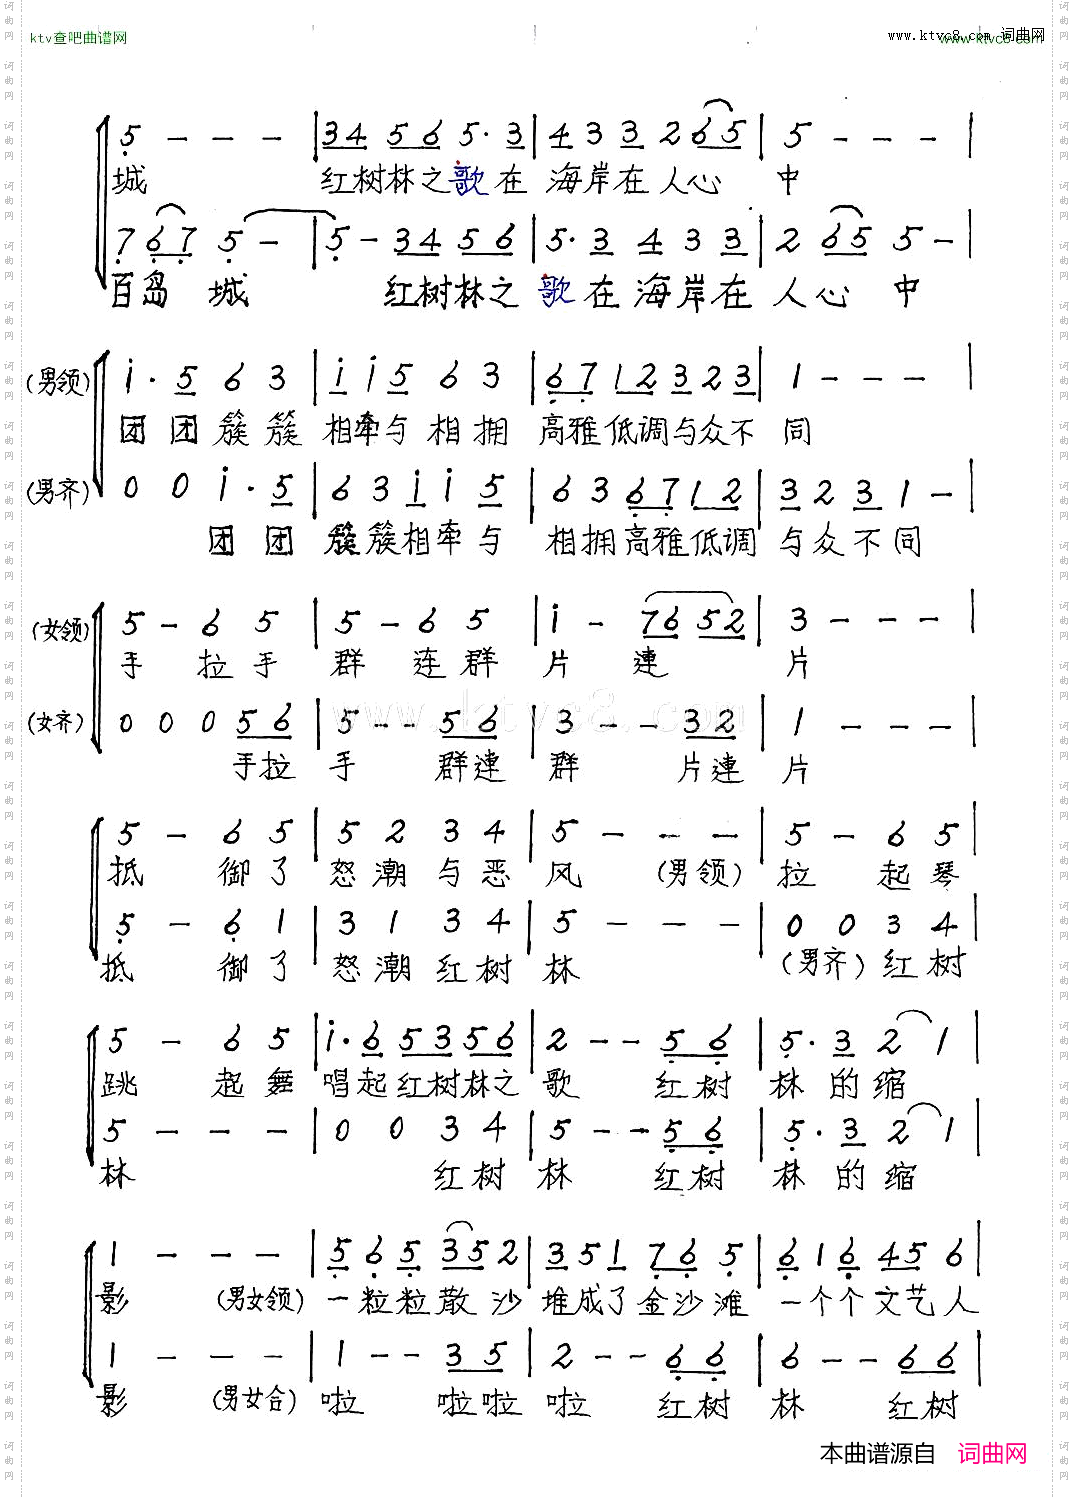 ktv查吧曲谱网
www.ktvc8.com 词曲网
5 – – – | 34 56 5· 3 | 4 3 3 2 65 | 5 – – – |
城 红树林之歌在 海岸在人心 中
7 67 5 – | 5 – 34 56 | 5· 3 4 3 3 | 2 65 5 – |
百岛 城 红树林之 歌在海岸在 人心 中
(男领) i· 5 6 3 | i i 5 6 3 | 67 12 3 2 3 | 1 – – – |
团团簇簇 相牵与相拥 高雅低调与众不 同
(男齐) 0 0 i· 5 | 6 3 i i 5 | 6 3 67 12 | 3 2 3 1 – |
团团 簇簇相牵与 相拥高雅低调 与众不同
(女领) 5 – 6 5 | 5 – 6 5 | i – 76 52 | 3 – – – |
手 拉手 群 连群 片 連 片
(女齐) 0 0 0 56 | 5 – – 56 | 3 – – 32 | 1 – – – |
手拉 手 群連 群 片連 片
www.ktvc8.com
5 – 6 5 | 5 2 3 4 | 5 – – – | 5 – 6 5 |
抵 御了 怒潮与恶 风 (男领) 拉 起琴
5 – 6 1 | 3 1 3 4 | 5 – – – | 0 0 3 4 |
抵 御了 怒潮红树 林 (男齐) 红树
5 – 6 5 | i· 6 53 56 | 2 – – 56 | 5· 3 2 1 |
跳 起舞 唱起红树林之 歌 红树 林的缩
5 – – – | 0 0 3 4 | 5 – – 56 | 5· 3 2 1 |
林 红树 林 红树 林的缩
1 – – – | 5 6 5 35 2 | 3 5 1 76 5 | 6 1 6 45 6 |
影 (男女领) 一粒粒散沙 堆成了金沙滩 一个个文艺人
1 – – – | 1 – – 35 | 2 – – 66 | 6 – – 66 |
影 (男女合) 啦 啦啦 啦 红树 林 红树
本曲谱源自 词曲网